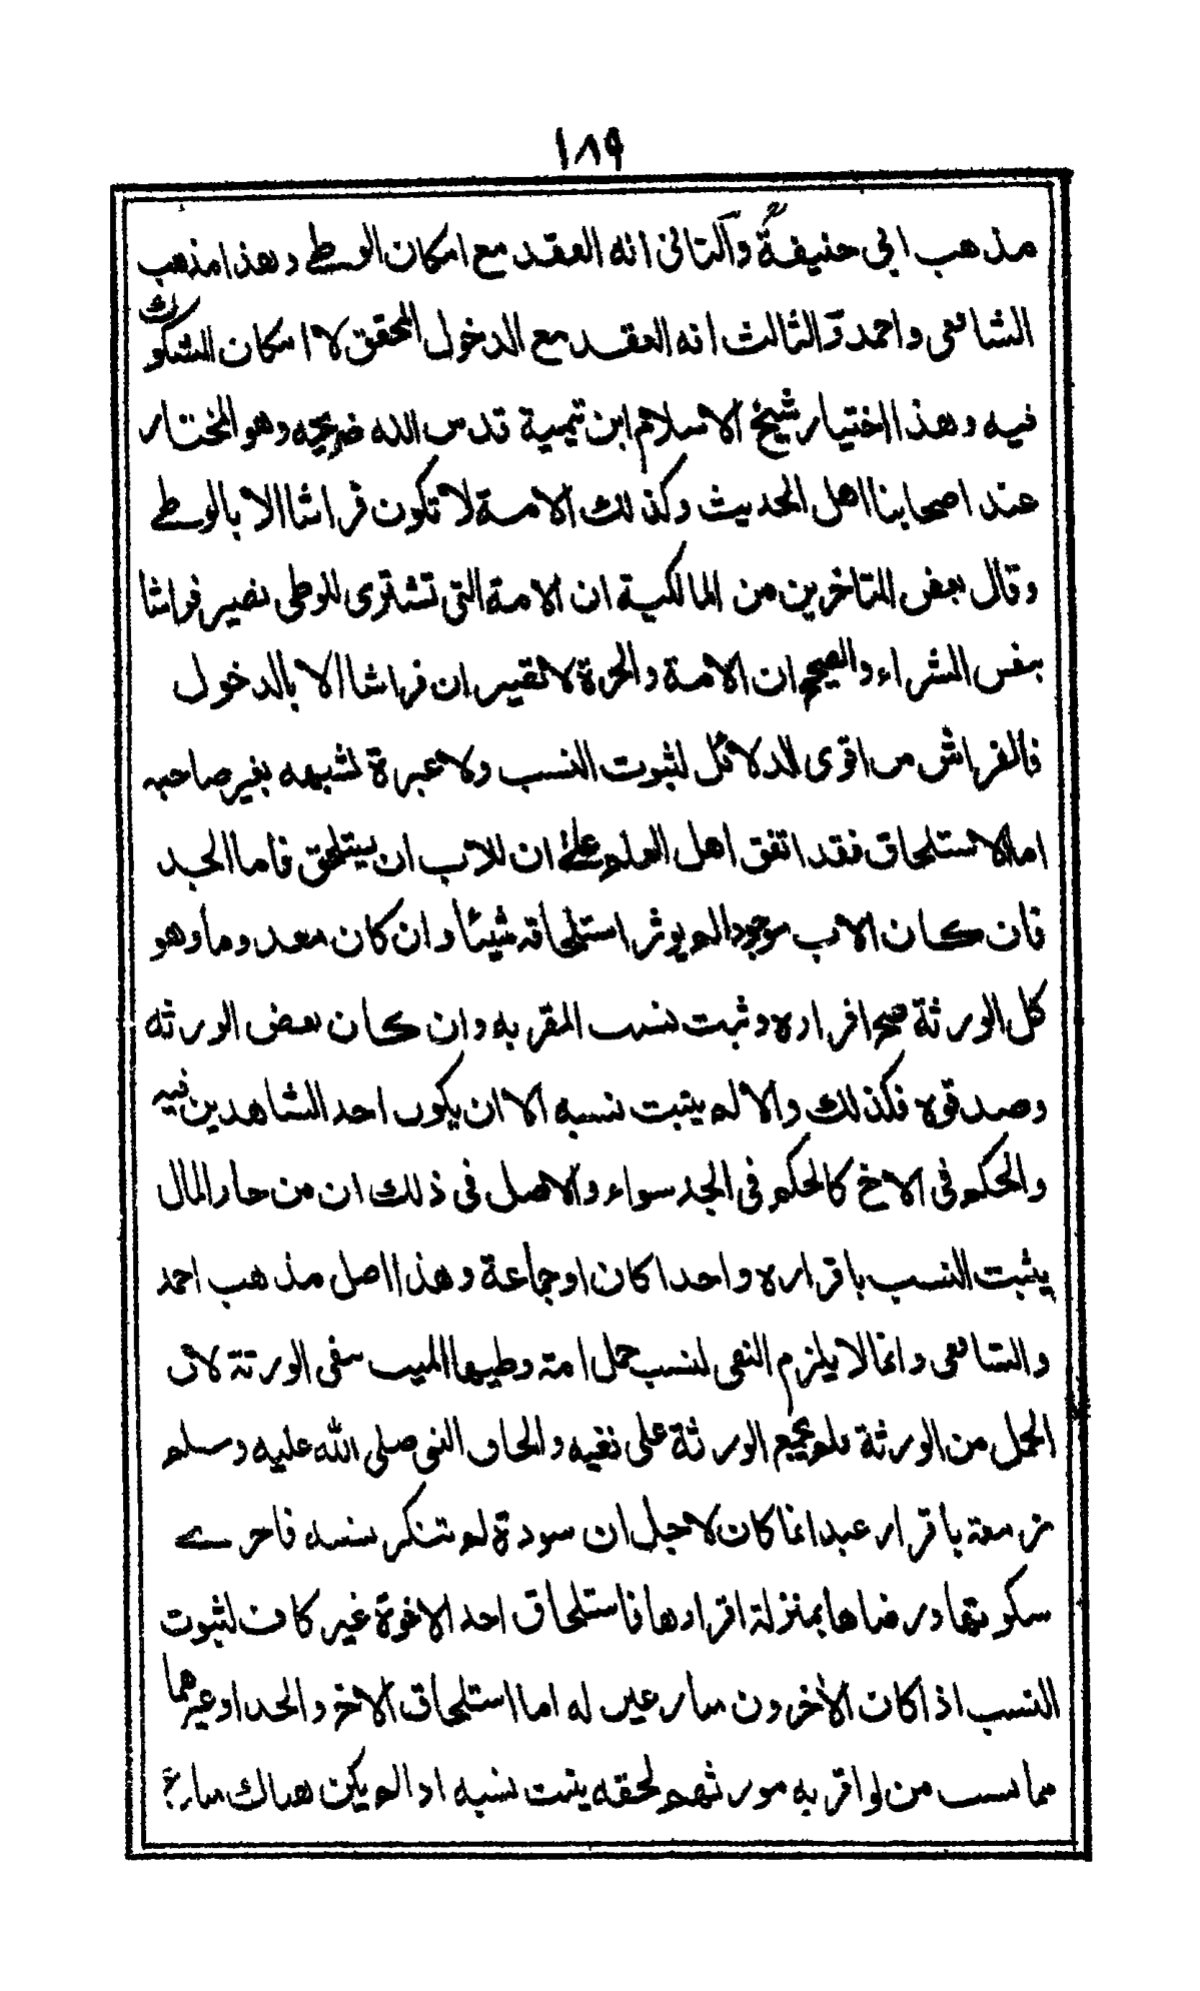 ١٨٩
مذهب ابي حنيفة والثاني انه العقد مع امكان الوطي وهذا مذهب
الشافعي واحمد والثالث انه العقد مع الدخول المحقق لا امكان الشكوك
فيه وهذا اختيار شيخ الاسلام ابن تيمية قدس الله ضريحه وهو المختار
عند اصحابنا اهل الحديث وكذلك الامة لا تكون فراشا الا بالوطي
وقال بعض المتاخرين من المالكية ان الامة التي تشترى للوطي تصير فراشا
بنفس الشراء والصحيح ان الامة والحرة لا تصيران فراشا الا بالدخول
فالفراش من اقوى الدلائل لثبوت النسب ولا عبرة لشبهه بغير صاحبه
اما الاستلحاق فقد اتفق اهل العلم على ان للاب ان يستلحق فاما الجد
فان كان الاب موجودا لم يوثر استلحاقه شيئا وان كان معدوما وهو
كل الورثة صح اقراره وثبت نسب المقر به وان كان بعض الورثه
وصدقوه فكذلك والا لم يثبت نسبه الا ان يكون احد الشاهدين فيه
والحكم في الاخ كالحكم في الجد سواء والاصل في ذلك ان من حاز المال
يثبت النسب باقراره واحدا كان او جماعة وهذا اصل مذهب احمد
والشافعي وانما لا يلزم النفي لنسب حمل امة وطيها الميت بنفي الورثة لان
الحمل من الورثة فلم يجمع الورثة على نفيه والحاق النبي صلى الله عليه وسلم
بن زمعة باقرار عبد انما كان لاجل ان سودة لم تنكر نسبه فاجرى
سكوتها ورضاها بمنزلة اقرارها فاستلحاق احد الاخوة غير كاف لثبوت
النسب اذا كان الأخرون منازعين له اما استلحاق الاخ والجد او غيرهما
مما نسب من لو اقر به مورثهم لحقه يثبت نسبه اذا لم يكن هناك منازع